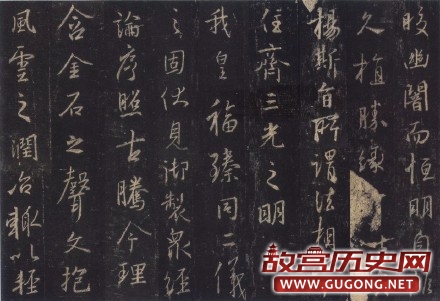 皎幽闇而恒明自
久植勝緣
揚斯旨所謂法相
住齊三光之明
我皇福臻同二儀
之固伏見御製眾經
論序照古騰今理
含金石之聲文抱
風雲之潤治輒以輕
故宫历史网
WWW.GUGONG.NET